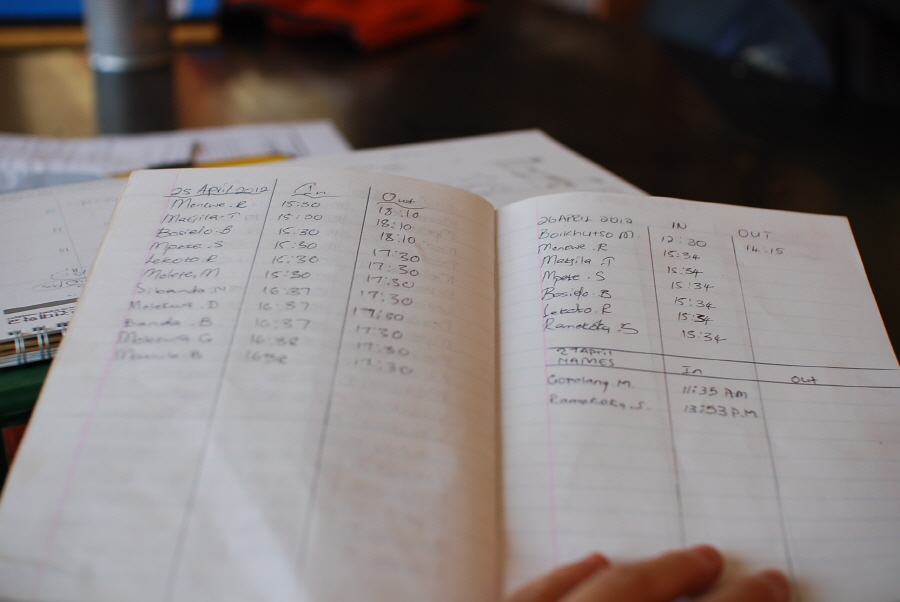 25 April 2012 In Out
Menewe. R 15:30 18:10
Matjila. T 15:30 18:10
Bosielo. B 15:30 18:10
Mpete. S 15:30 17:30
Lekoto. R 15:30 17:30
Molete, M 15:30 17:30
Sibanda. N 16:37 17:30
D 16:37 17:30
Banda. B 16:37 17:30
G 16:38 17:30
B 1638 17:30
26 APRIL 2012 IN OUT
Boikhutso M. 12:30 14:15
Menewe. R 15:34
Matjila. T 15:34
Mpete. S 15:34
Bosielo. B 15:34
Lekoto. R 15:34
Ramokoka. S 15:34
27 April
NAMES In out
M. 11:35 Am
Ramokoka. S. 13:53 P.M